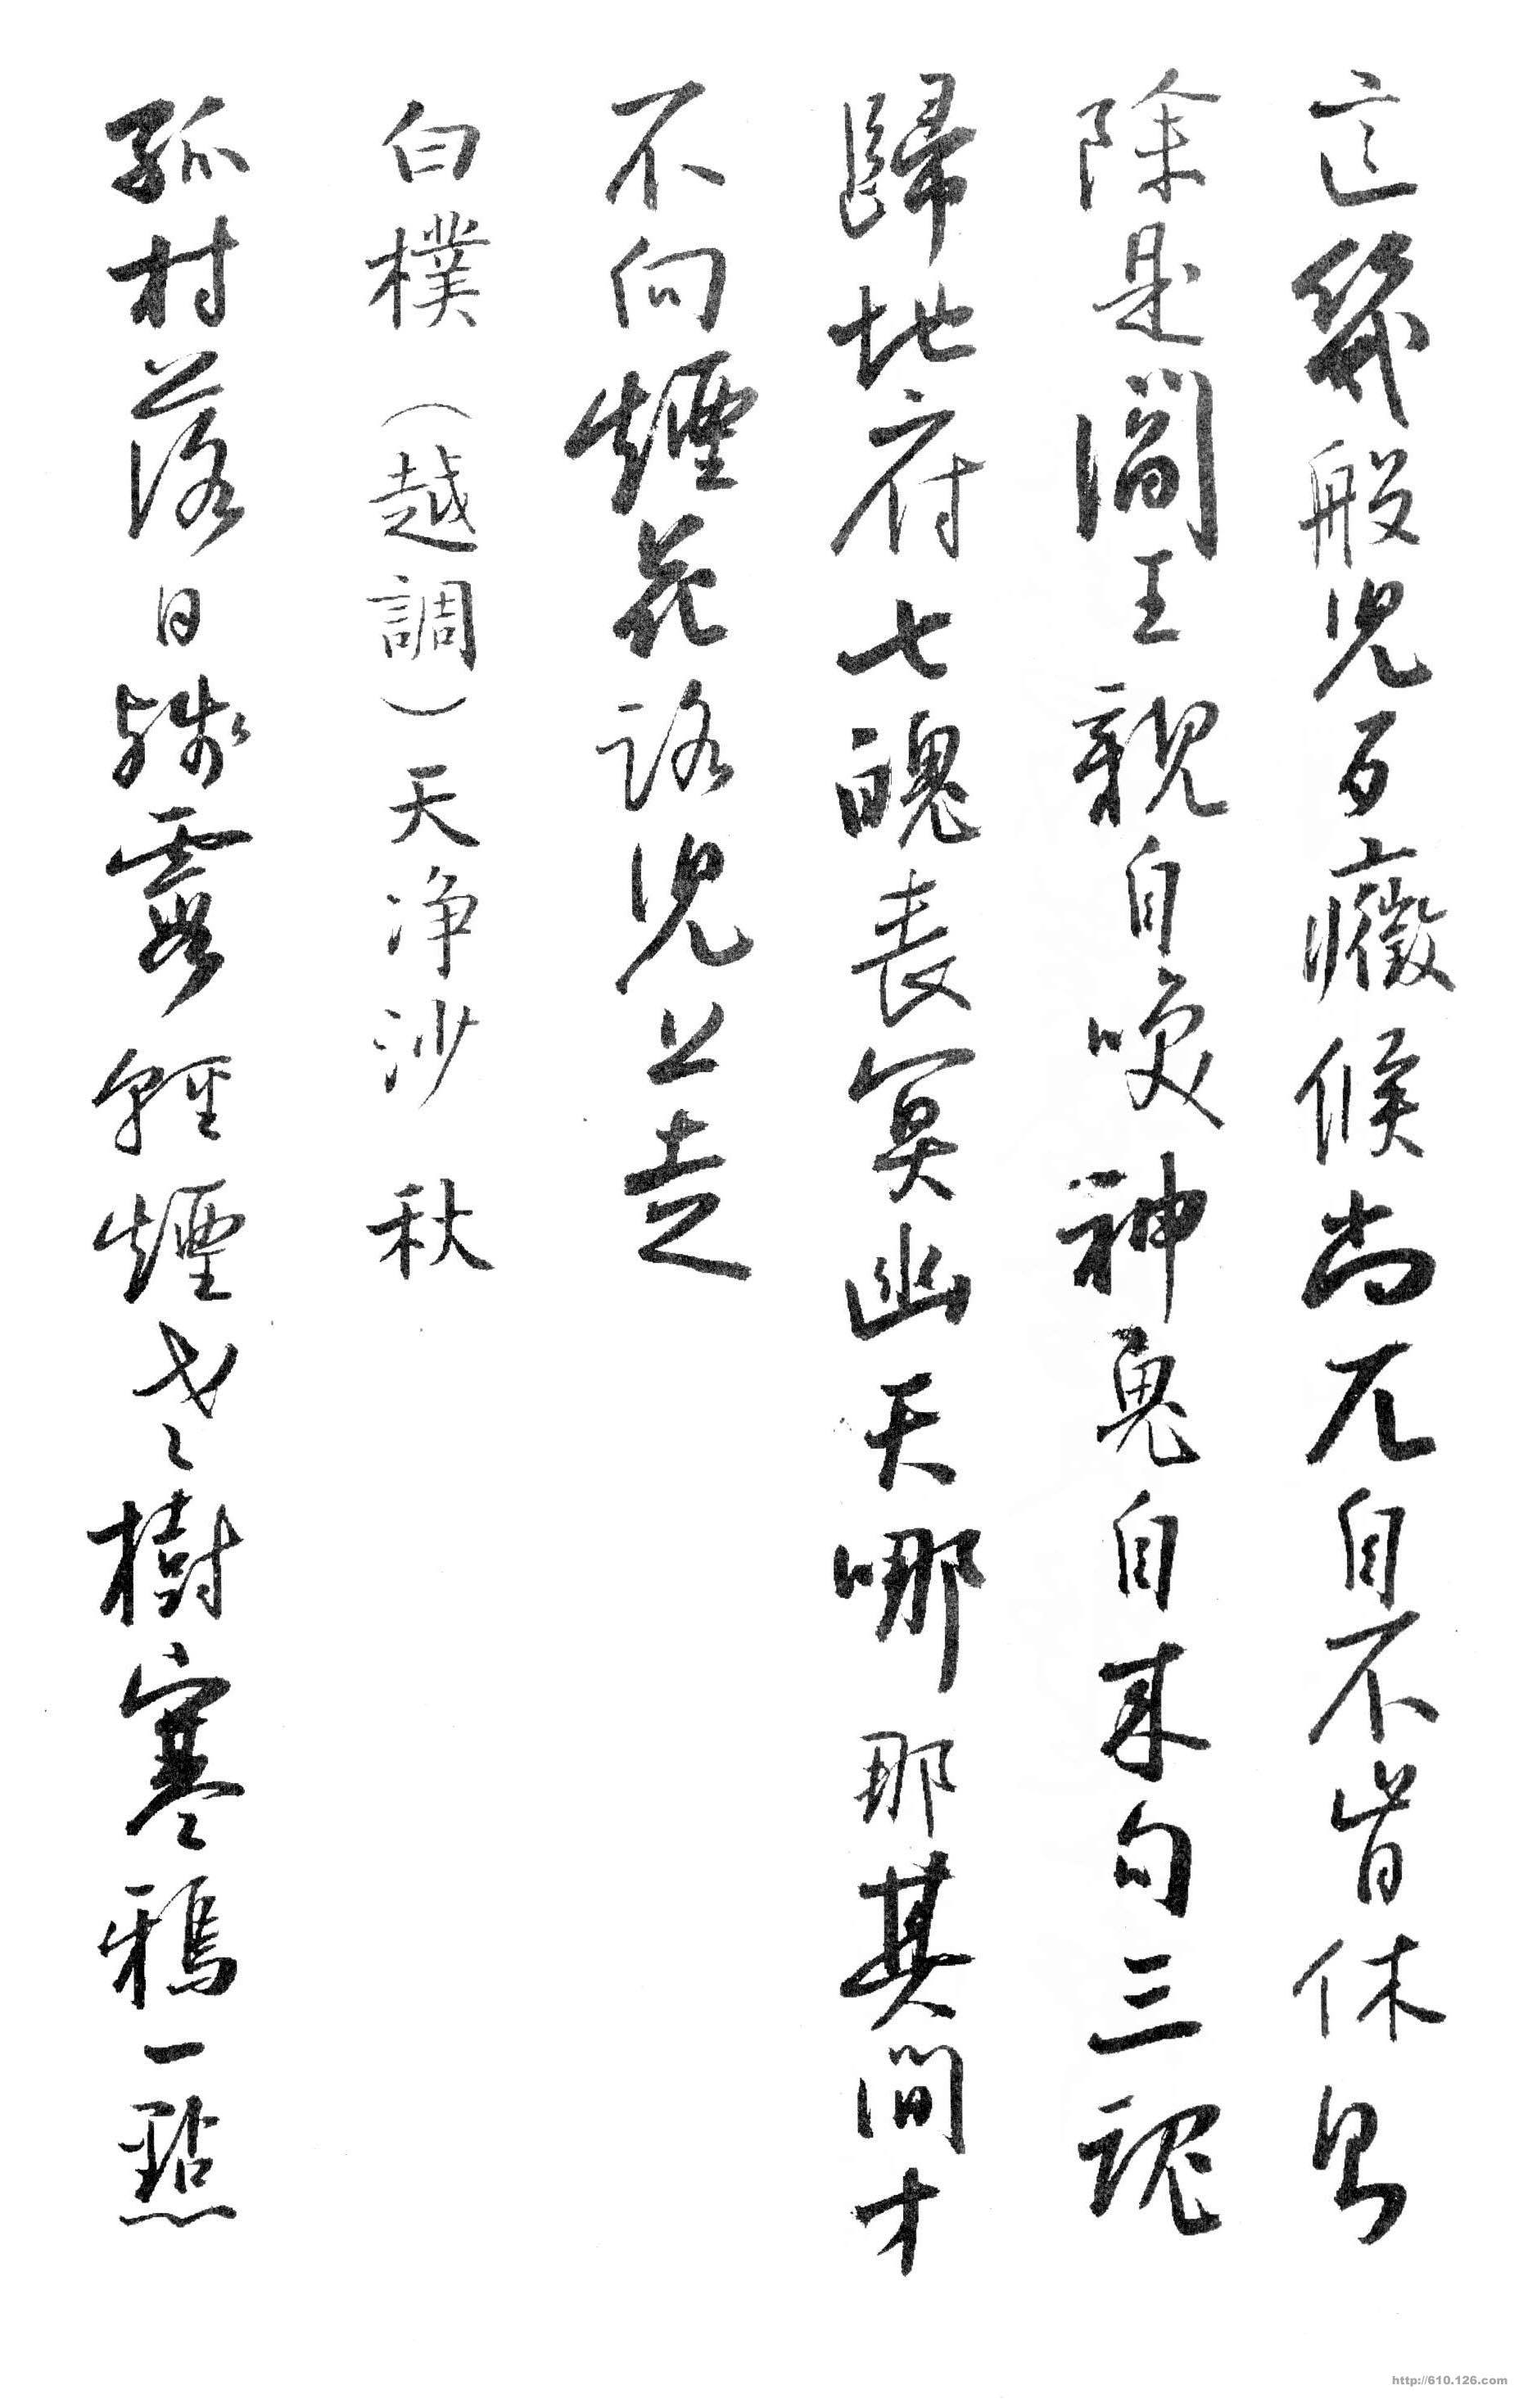 這幾般兒歹癥候尚兀自不肯休則
除是閻王親自喚神鬼自來勾三魂
歸地府七魄喪冥幽天哪那其間才
不向煙花路兒上走
白樸（越調）天净沙　秋
孤村落日殘霞輕煙老樹寒鴉一點
http://610.126.com